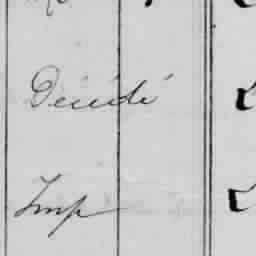 Décédé
Imp